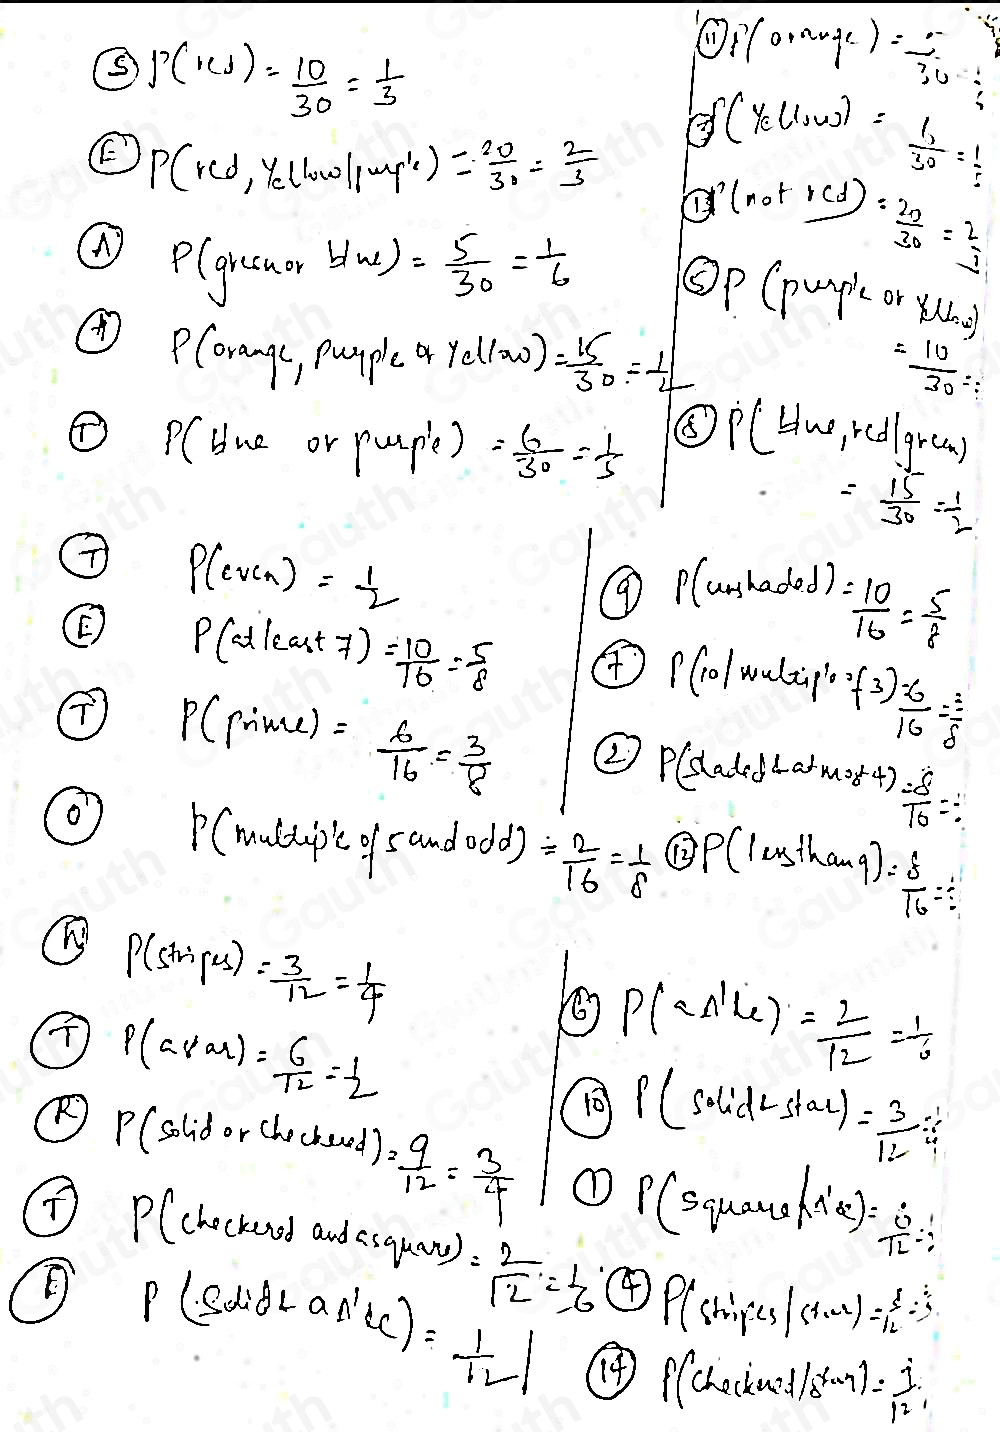 Ⓢ P(red) = 10/30 = 1/3
Ⓔ P(red, Yellow/purple) = 20/30 = 2/3
Ⓐ P(green or blue) = 5/30 = 1/6
P(orange, purple or Yellow) = 15/30 = 1/2
P(blue or purple) = 6/30 = 1/5
⑪ P(orange) = 5/30
P(Yellow) = 6/30 = 1/5
⑬ P(not red) = 20/30 = 2/3
⑤ P(purple or Yellow)
= 10/30 =
⑧ P(blue, red/green)
= 15/30 = 1/2
Ⓣ P(even) = 1/2
Ⓔ P(at least 7) = 10/16 = 5/8
Ⓣ P(prime) = 6/16 = 3/8
Ⓞ P(multiple of 5 and odd) = 2/16 = 1/8
⑨ P(unshaded) = 10/16 = 5/8
⑦ P(10/multiple of 3) = 6/16 = 3/8
② P(shaded & at most 4) = 8/16 =
⑫ P(less than 9) = 8/16 =
P(stripes) = 3/12 = 1/4
Ⓣ P(a star) = 6/12 = 1/2
Ⓡ P(solid or checkered) = 9/12 = 3/4
Ⓣ P(checkered and a square) = 2/12 = 1/6
Ⓔ P(solid & a Δ'le) = 1/12
⑥ P(a Δ'le) = 2/12 = 1/6
⑩ P(solid & star) = 3/12 = 1/4
① P(square/Δ'le) = 6/12 =
④ P(stripes/star) = /12 =
⑭ P(checkered/star) = /12